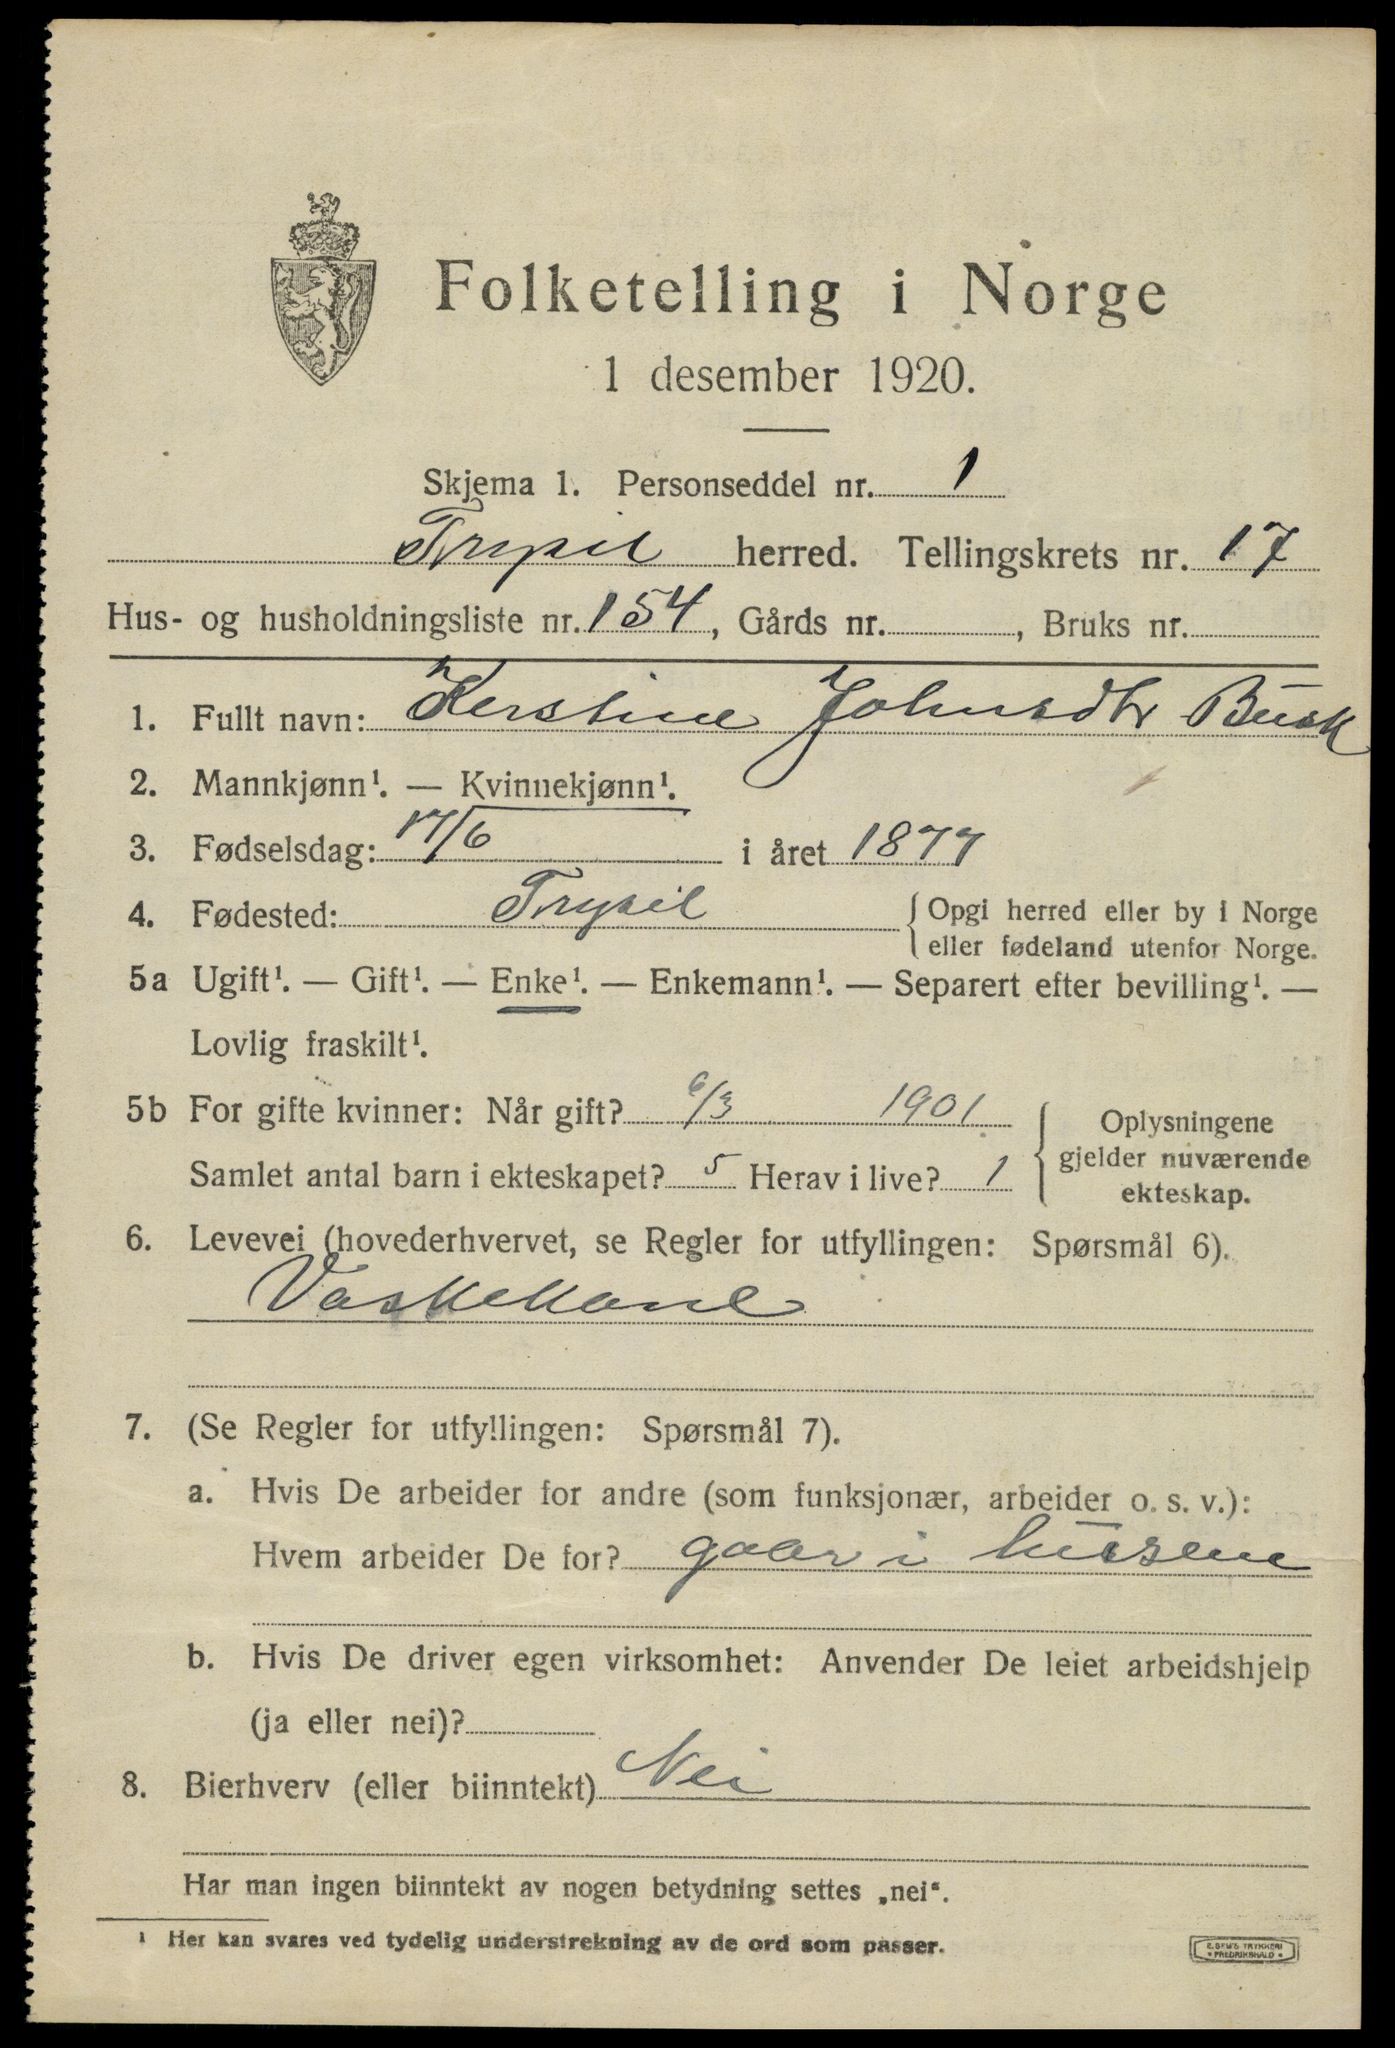 Folketelling i Norge
1 desember 1920.
Skjema 1. Personseddel nr. 1
Trysil herred. Tellingskrets nr. 17
Hus- og husholdningsliste nr. 154, Gårds nr. , Bruks nr.
1. Fullt navn: Kerstine Johnsdtr Busk
2. Mannkjønn¹. — Kvinnekjønn¹.
3. Fødselsdag: 17/6 i året 1877
4. Fødested: Trysil { Opgi herred eller by i Norge
eller fødeland utenfor Norge.
5a Ugift¹. — Gift¹. — Enke¹. — Enkemann¹. — Separert efter bevilling¹. —
Lovlig fraskilt¹.
5b For gifte kvinner: Når gift? 6/3 1901.
Samlet antal barn i ekteskapet? 5 Herav i live? 1
{ Oplysningene
gjelder nuværende
ekteskap.
6. Levevei (hovederhvervet, se Regler for utfyllingen: Spørsmål 6).
Vaskekone
7. (Se Regler for utfyllingen: Spørsmål 7).
a. Hvis De arbeider for andre (som funksjonær, arbeider o. s. v.):
Hvem arbeider De for? gaar i husene
b. Hvis De driver egen virksomhet: Anvender De leiet arbeidshjelp
(ja eller nei)?
8. Bierhverv (eller biinntekt) Nei
Har man ingen biinntekt av nogen betydning settes „nei“.
¹ Her kan svares ved tydelig understrekning av de ord som passer.
E. SEM'S TRYKKERI
• FREDRIKSHALD •